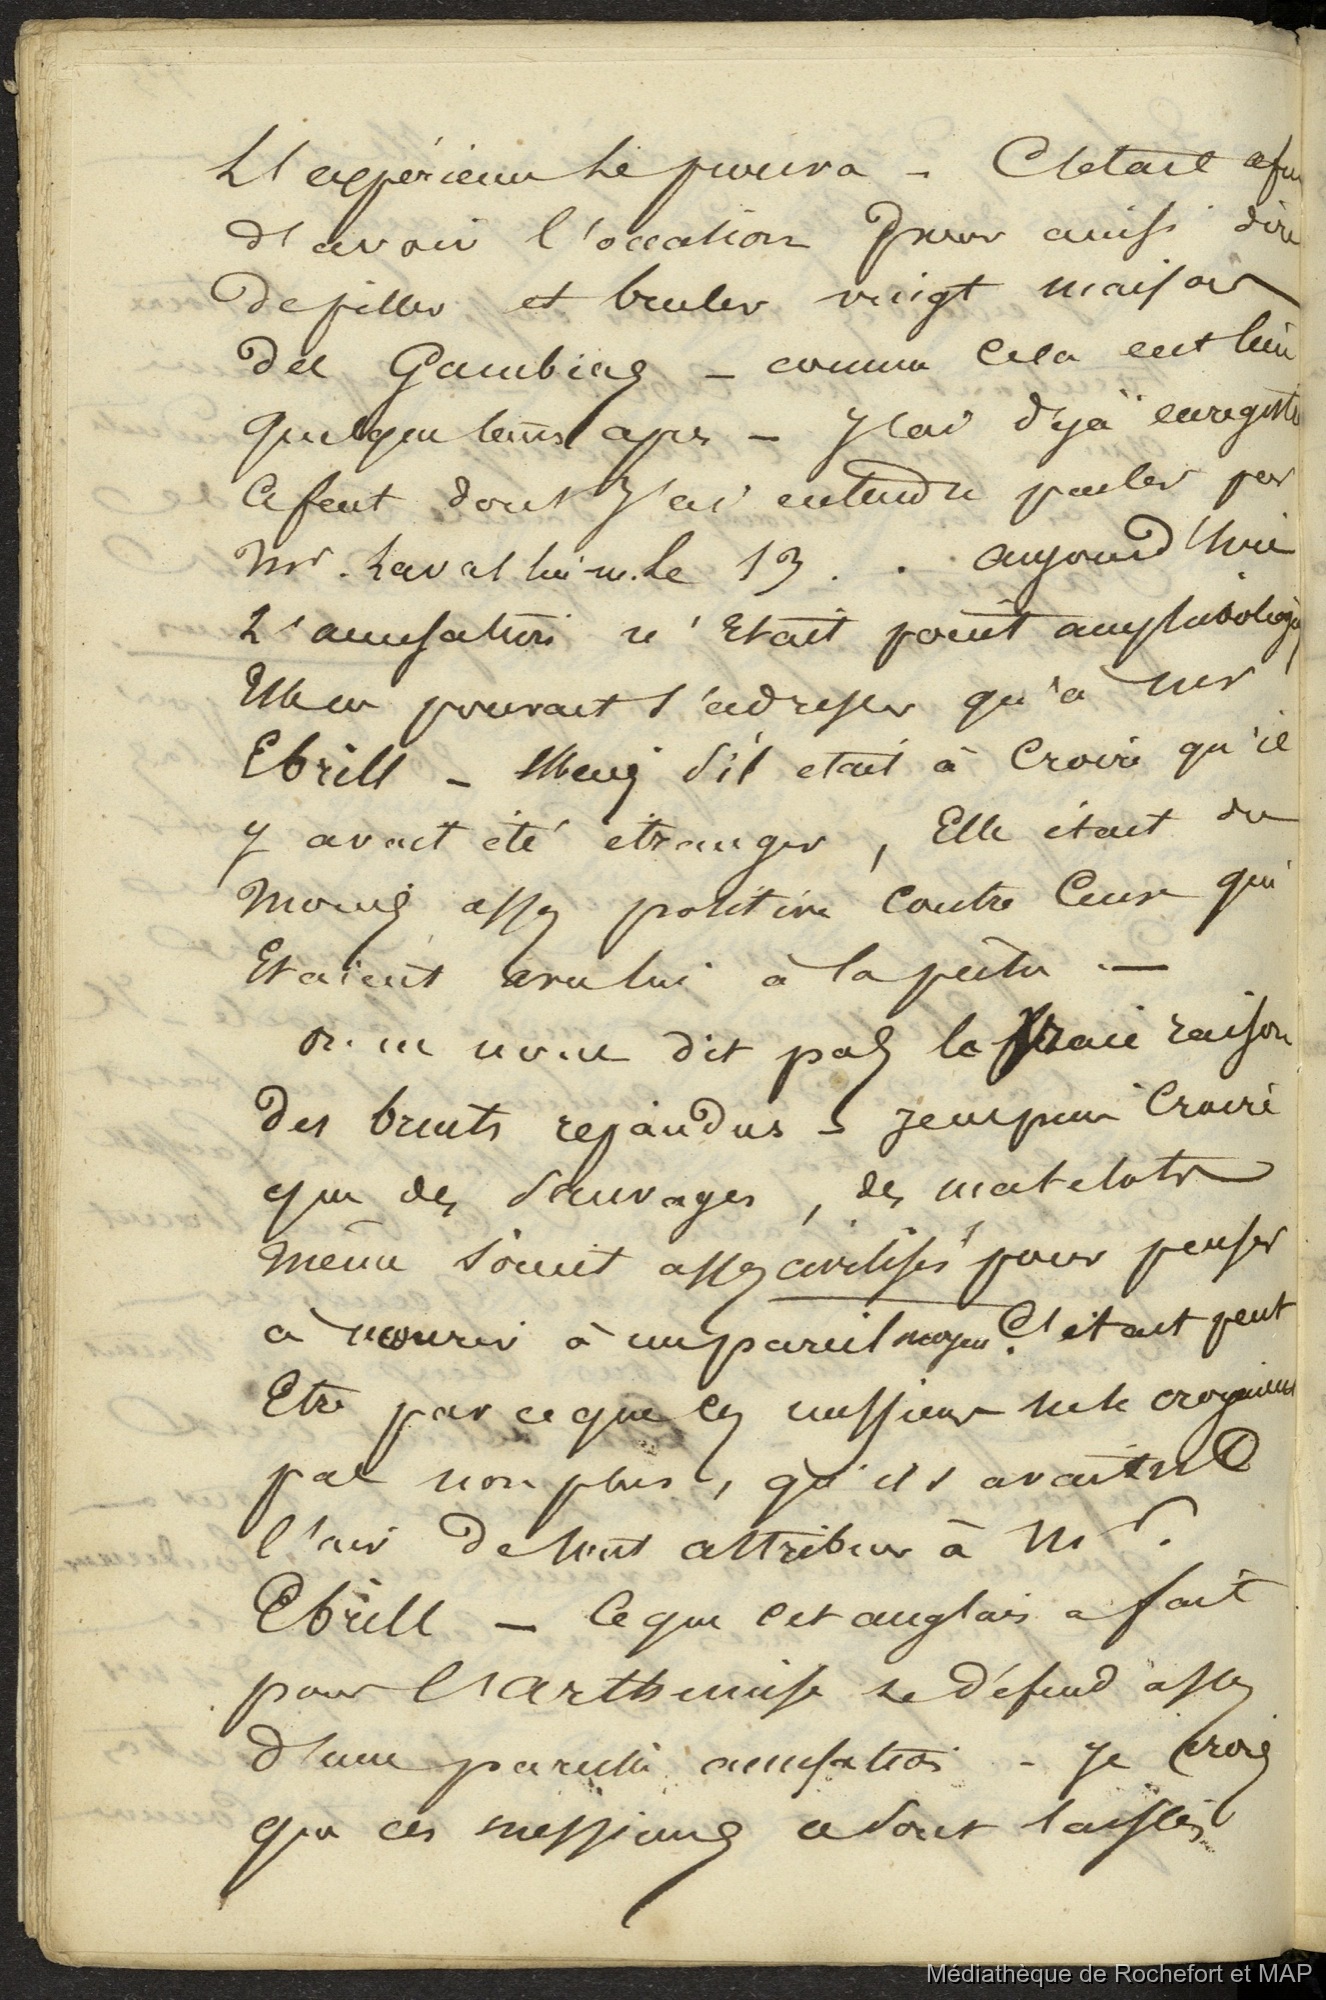 L'expérience le prouva - C'etait afin
d'avoir l'occation pour ainsi dire
de piller et bruler vingt maisons
des Gambiers - comme cela eut lieu
quelque tems apres - J'ai déjà enregistré
ce fait dont j'ai entendu parler par
Mr. Laval lui-m. le 13 . . aujourd'hui
L'accusation n'etait point amphibologiq
Elle ne pouvait s'adresser qu'à Mr
Ebrill - Mais s'il etait à croire qu'il
y avait été étranger, Elle était du
moins assez positive contre ceux qui
Etaient avec lui à la peche —
on ne nous dit pas la vraie raison
des bruits repandus - je ne puis croire
que des sauvages, des matelots
même soient assez civilisés pour penser
à mourir à un pareil moyen. C'était peut
Etre parceque ces messieurs ne le croyaient
pas non plus, qu'ils avaient
l'air de tout attribuer à Mr.
Ebrill - Ce que cet anglais a fait
pour l'Arthemise le défend assez
d'une pareille accusation - je crois
que ces messieurs se sont laissés
Médiathèque de Rochefort et MAP